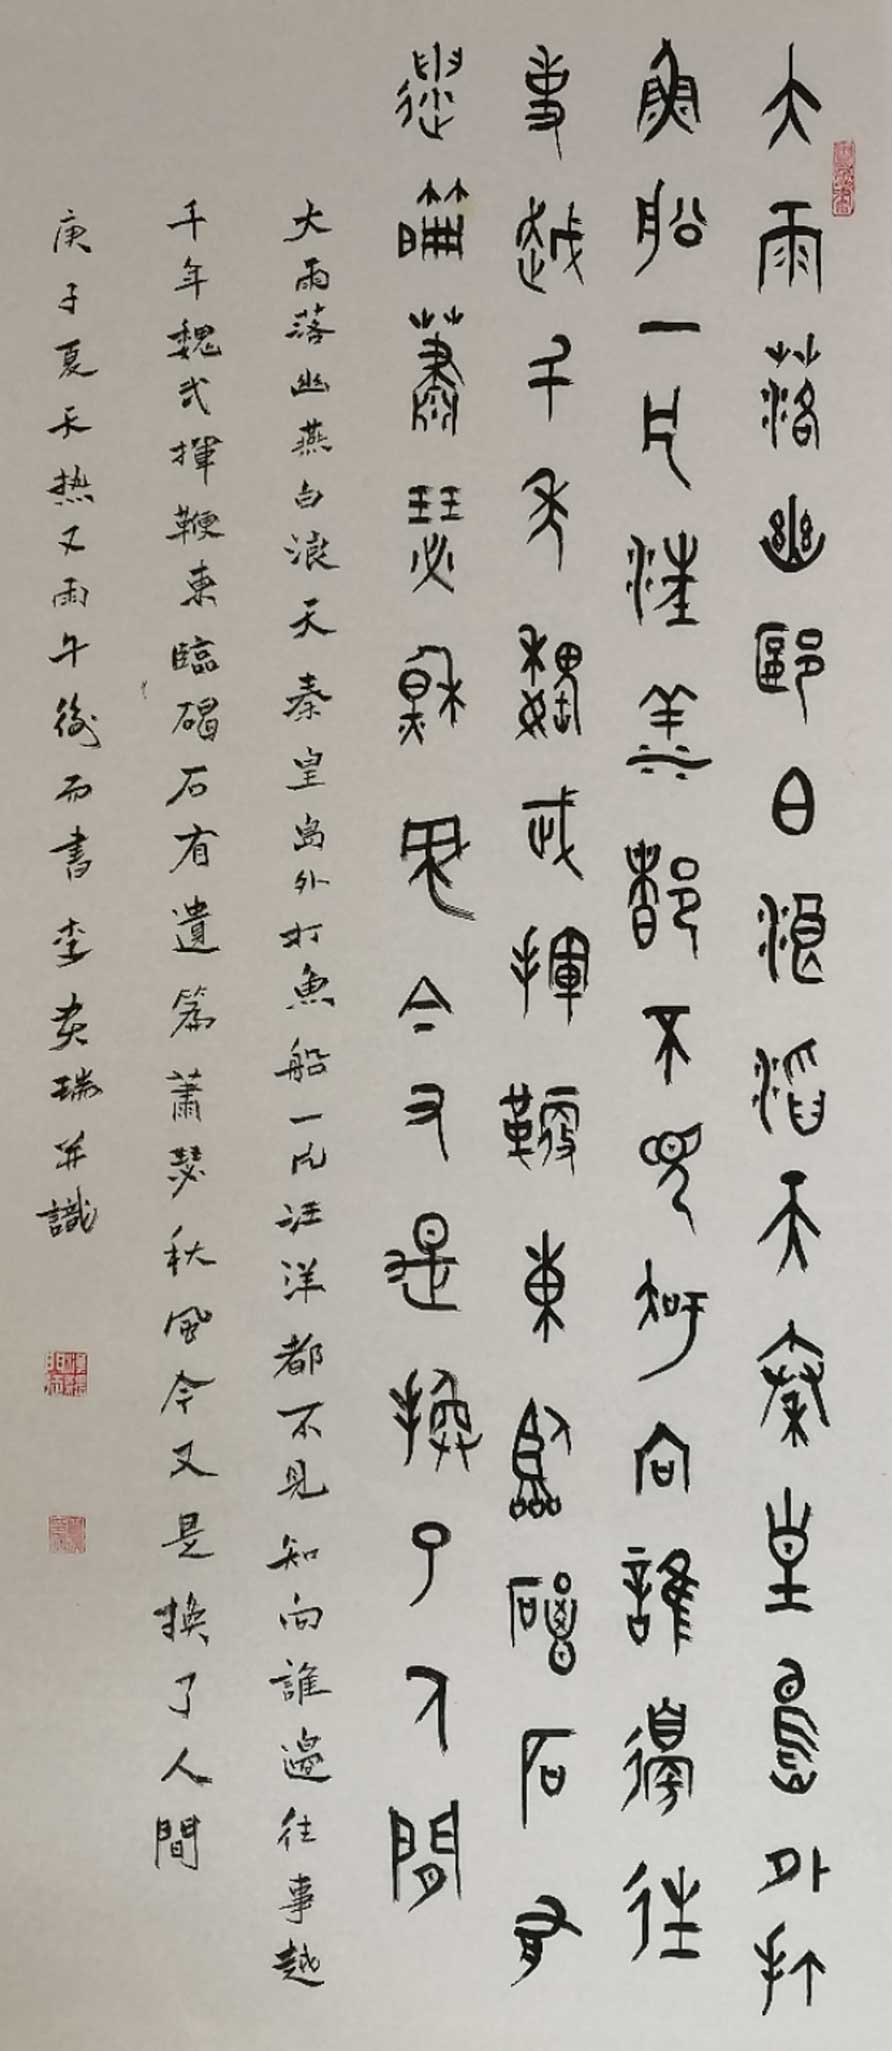 大雨落幽郾白浪滔天秦皇島外打
魚船一片汪洋都不見知向誰邊往
事越千年魏武揮鞭東臨碣石有
遺篇蕭瑟秋風今又是換了人間
大雨落幽燕白浪天秦皇島外打魚船一片汪洋都不見知向誰邊往事越
千年魏武揮鞭東臨碣石有遺篇蕭瑟秋風今又是換了人間
庚子夏天热又雨午後而書李瑞并識